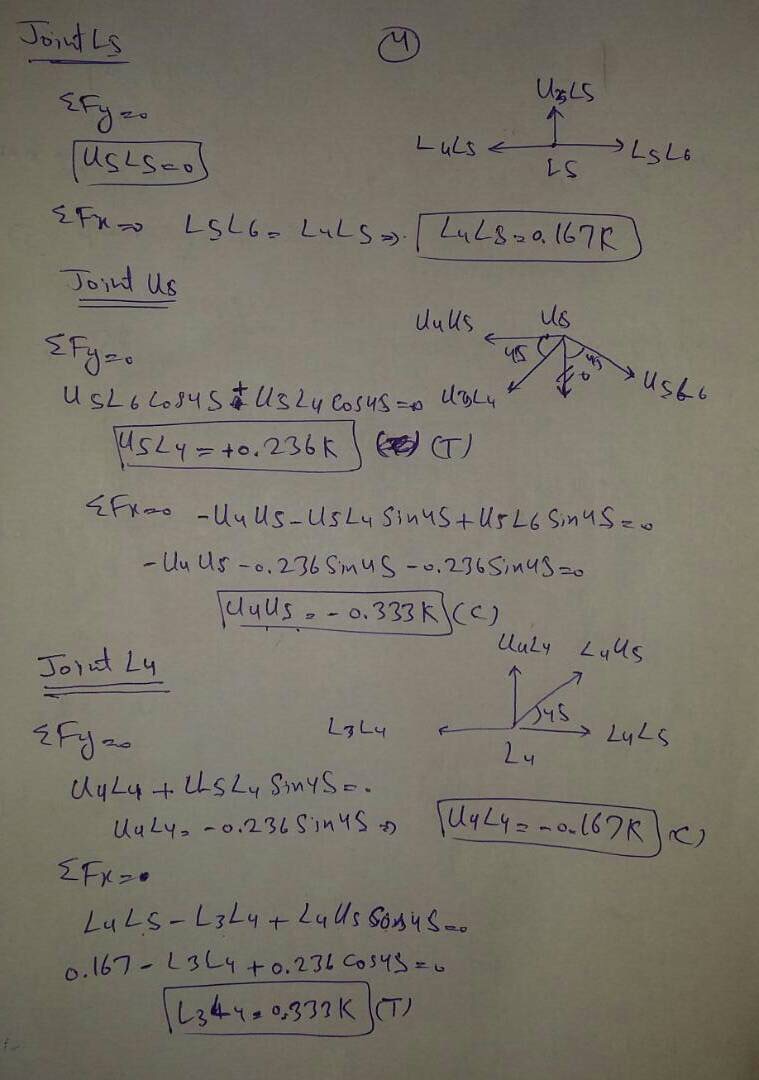 Joint L5
4
ΣFy=0
U5L5=0
U5L5
L4L5
L5L6
L5
ΣFx=0 L5L6= L4L5 ⇒ L4L5=0.167K
Joint U5
U4U5
U5
45
45
0
U5L4
U5L6
ΣFy=0
U5L6 Cos45 + U5L4 Cos45=0
U5L4 = +0.236K (T)
ΣFx=0 -U4U5-U5L4 Sin45+U5L6 Sin45=0
-U4U5-0.236Sin45-0.236Sin45=0
U4U5=-0.333K (C)
Joint L4
U4L4
L4U5
45
L3L4
L4L5
L4
ΣFy=0
U4L4 + U5L4 Sin45=0
U4L4=-0.236Sin45 ⇒ U4L4=-0.167K (C)
ΣFx=0
L4L5-L3L4+L4U5 Cos45=0
0.167-L3L4+0.236 cos45=0
L3L4=0.333K (T)